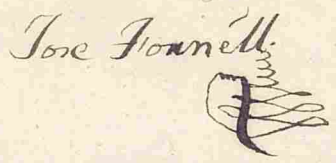 Jose Fornéll.